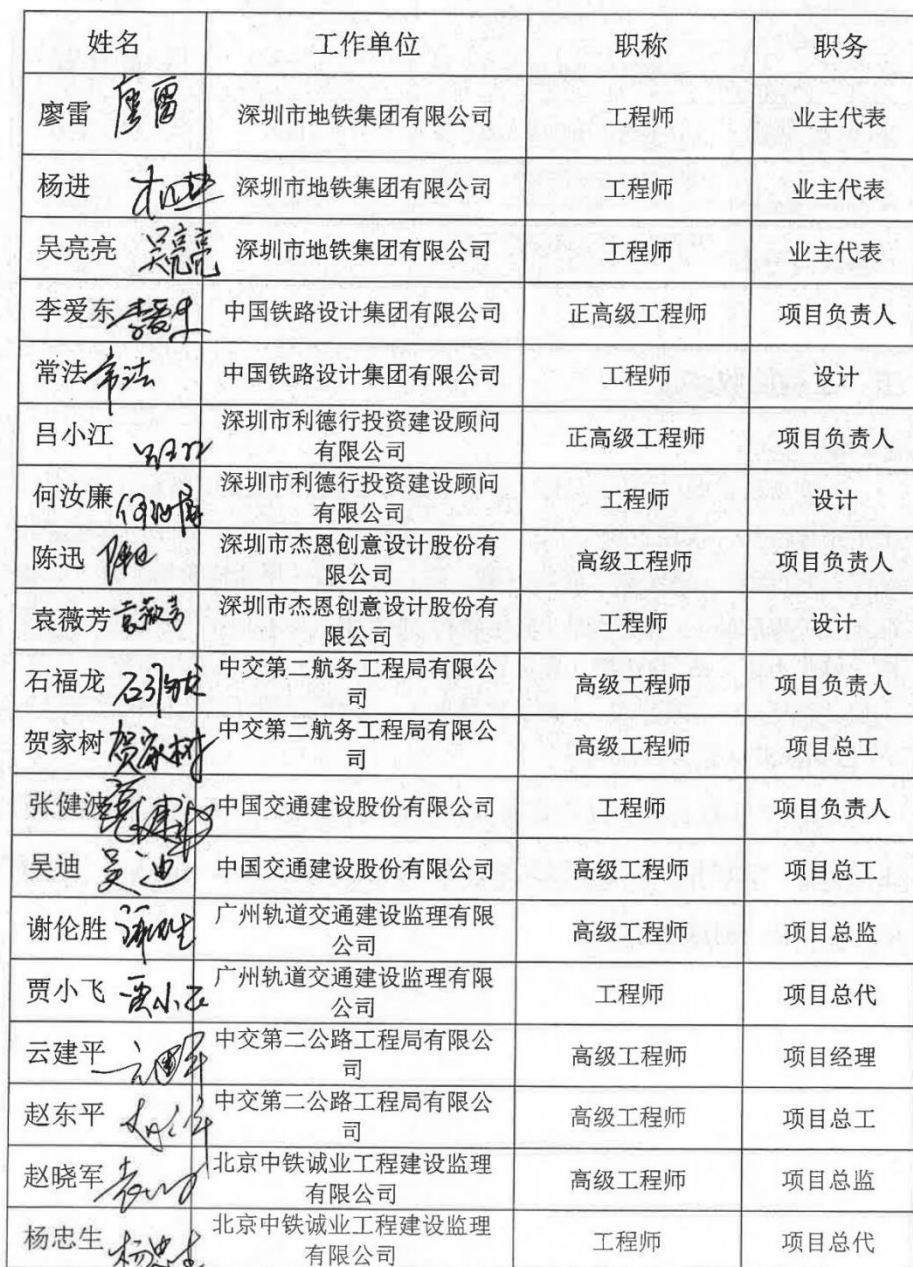 姓名 工作单位 职称 职务
廖雷 廖雷 深圳市地铁集团有限公司 工程师 业主代表
杨进 杨进 深圳市地铁集团有限公司 工程师 业主代表
吴亮亮 吴亮亮 深圳市地铁集团有限公司 工程师 业主代表
李爱东 李爱东 中国铁路设计集团有限公司 正高级工程师 项目负责人
常法 常法 中国铁路设计集团有限公司 工程师 设计
吕小江 深圳市利德行投资建设顾问
有限公司 正高级工程师 项目负责人
何汝廉 何汝廉 深圳市利德行投资建设顾问
有限公司 工程师 设计
陈迅 陈迅 深圳市杰恩创意设计股份有
限公司 高级工程师 项目负责人
袁薇芳 袁薇芳 深圳市杰恩创意设计股份有
限公司 工程师 设计
石福龙 中交第二航务工程局有限公
司 高级工程师 项目负责人
贺家树 贺家树 中交第二航务工程局有限公
司 高级工程师 项目总工
张健波 中国交通建设股份有限公司 工程师 项目负责人
吴迪 吴迪 中国交通建设股份有限公司 高级工程师 项目总工
谢伦胜 谢伦胜 广州轨道交通建设监理有限
公司 高级工程师 项目总监
贾小飞 贾小飞 广州轨道交通建设监理有限
公司 工程师 项目总代
云建平 中交第二公路工程局有限公
司 高级工程师 项目经理
赵东平 中交第二公路工程局有限公
司 高级工程师 项目总工
赵晓军 北京中铁诚业工程建设监理
有限公司 高级工程师 项目总监
杨忠生 杨忠生 北京中铁诚业工程建设监理
有限公司 工程师 项目总代